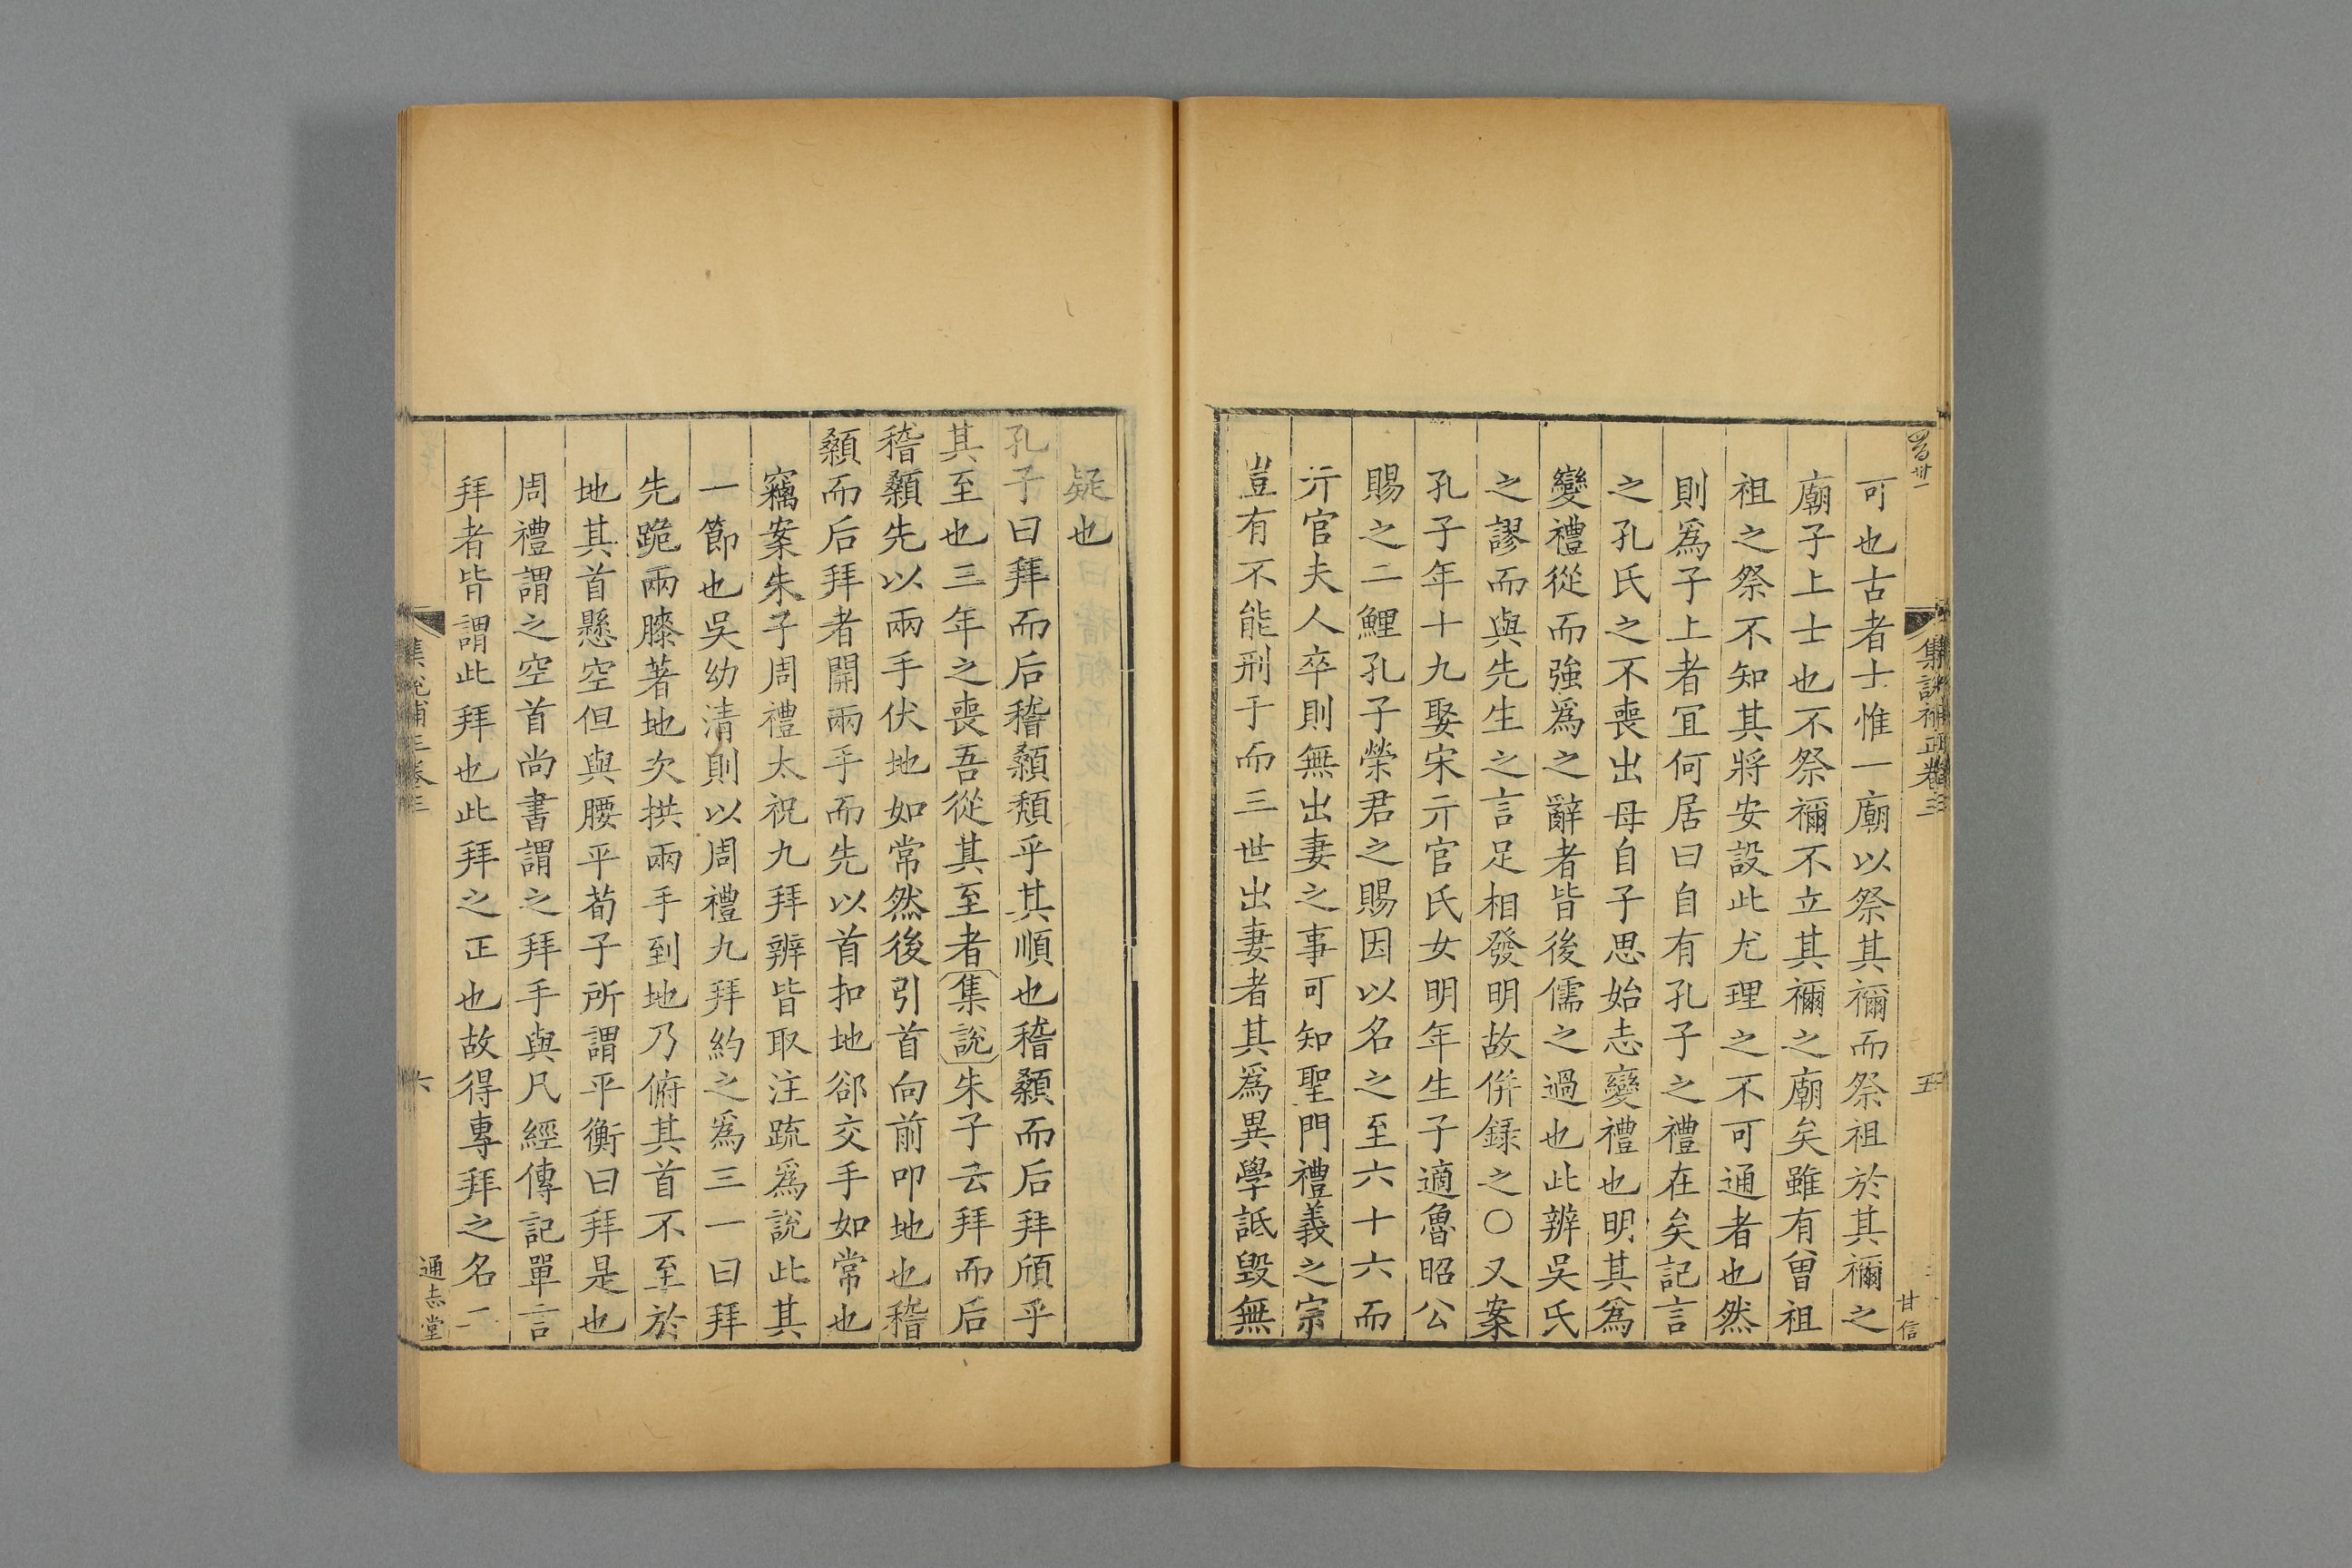 集說補正卷三
五
甘信
可也古者士惟一廟以祭其禰而祭祖於其禰之
廟子上士也不祭禰不立其禰之廟矣雖有曾祖
祖之祭不知其將安設此尤理之不可通者也然
則爲子上者冝何居曰自有孔子之禮在矣記言
之孔氏之不喪出母自子思始志變禮也明其爲
變禮從而強爲之辭者皆後儒之過也此辨吳氏
之謬而與先生之言足相發明故併録之○又案
孔子年十九娶宋亓官氏女明年生子適魯昭公
賜之二鯉孔子榮君之賜因以名之至六十六而
亓官夫人卒則無出妻之事可知聖門禮義之宗
豈有不能刑于而三世出妻者其爲異學詆毀無
疑也
孔子曰拜而后稽顙頹乎其順也稽顙而后拜頎乎
其至也三年之喪吾從其至者集說朱子云拜而后
稽顙先以兩手伏地如常然後引首向前叩地也稽
顙而后拜者開兩手而先以首扣地郤交手如常也
竊案朱子周禮太祝九拜辨皆取注疏爲說此其
一節也吳幼清則以周禮九拜約之爲三一曰拜
先跪兩膝著地次拱兩手到地乃俯其首不至於
地其首懸空但與腰平荀子所謂平衡曰拜是也
周禮謂之空首尚書謂之拜手與凡經傳記單言
拜者皆謂此拜也此拜之正也故得專拜之名一
集說補正卷三
六
通志堂